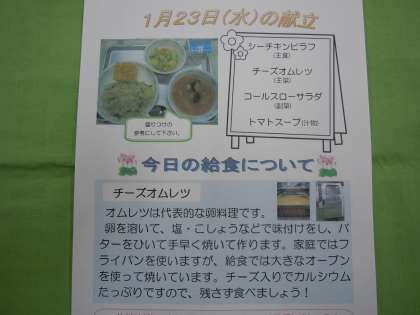 1月23日(水)の献立
シーチキンピラフ
(主食)
チーズオムレツ
(主菜)
コールスローサラダ
(副菜)
トマトスープ(汁物)
盛りつけの
参考にして下さい。
今日の給食について
チーズオムレツ
オムレツは代表的な卵料理です。
卵を溶いて、塩・こしょうなどで味付けをし、バ
ターをひいて手早く焼いて作ります。家庭ではフ
ライパンを使いますが、給食では大きなオーブン
を使って焼いています。チーズ入りでカルシウム
たっぷりですので、残さず食べましょう!